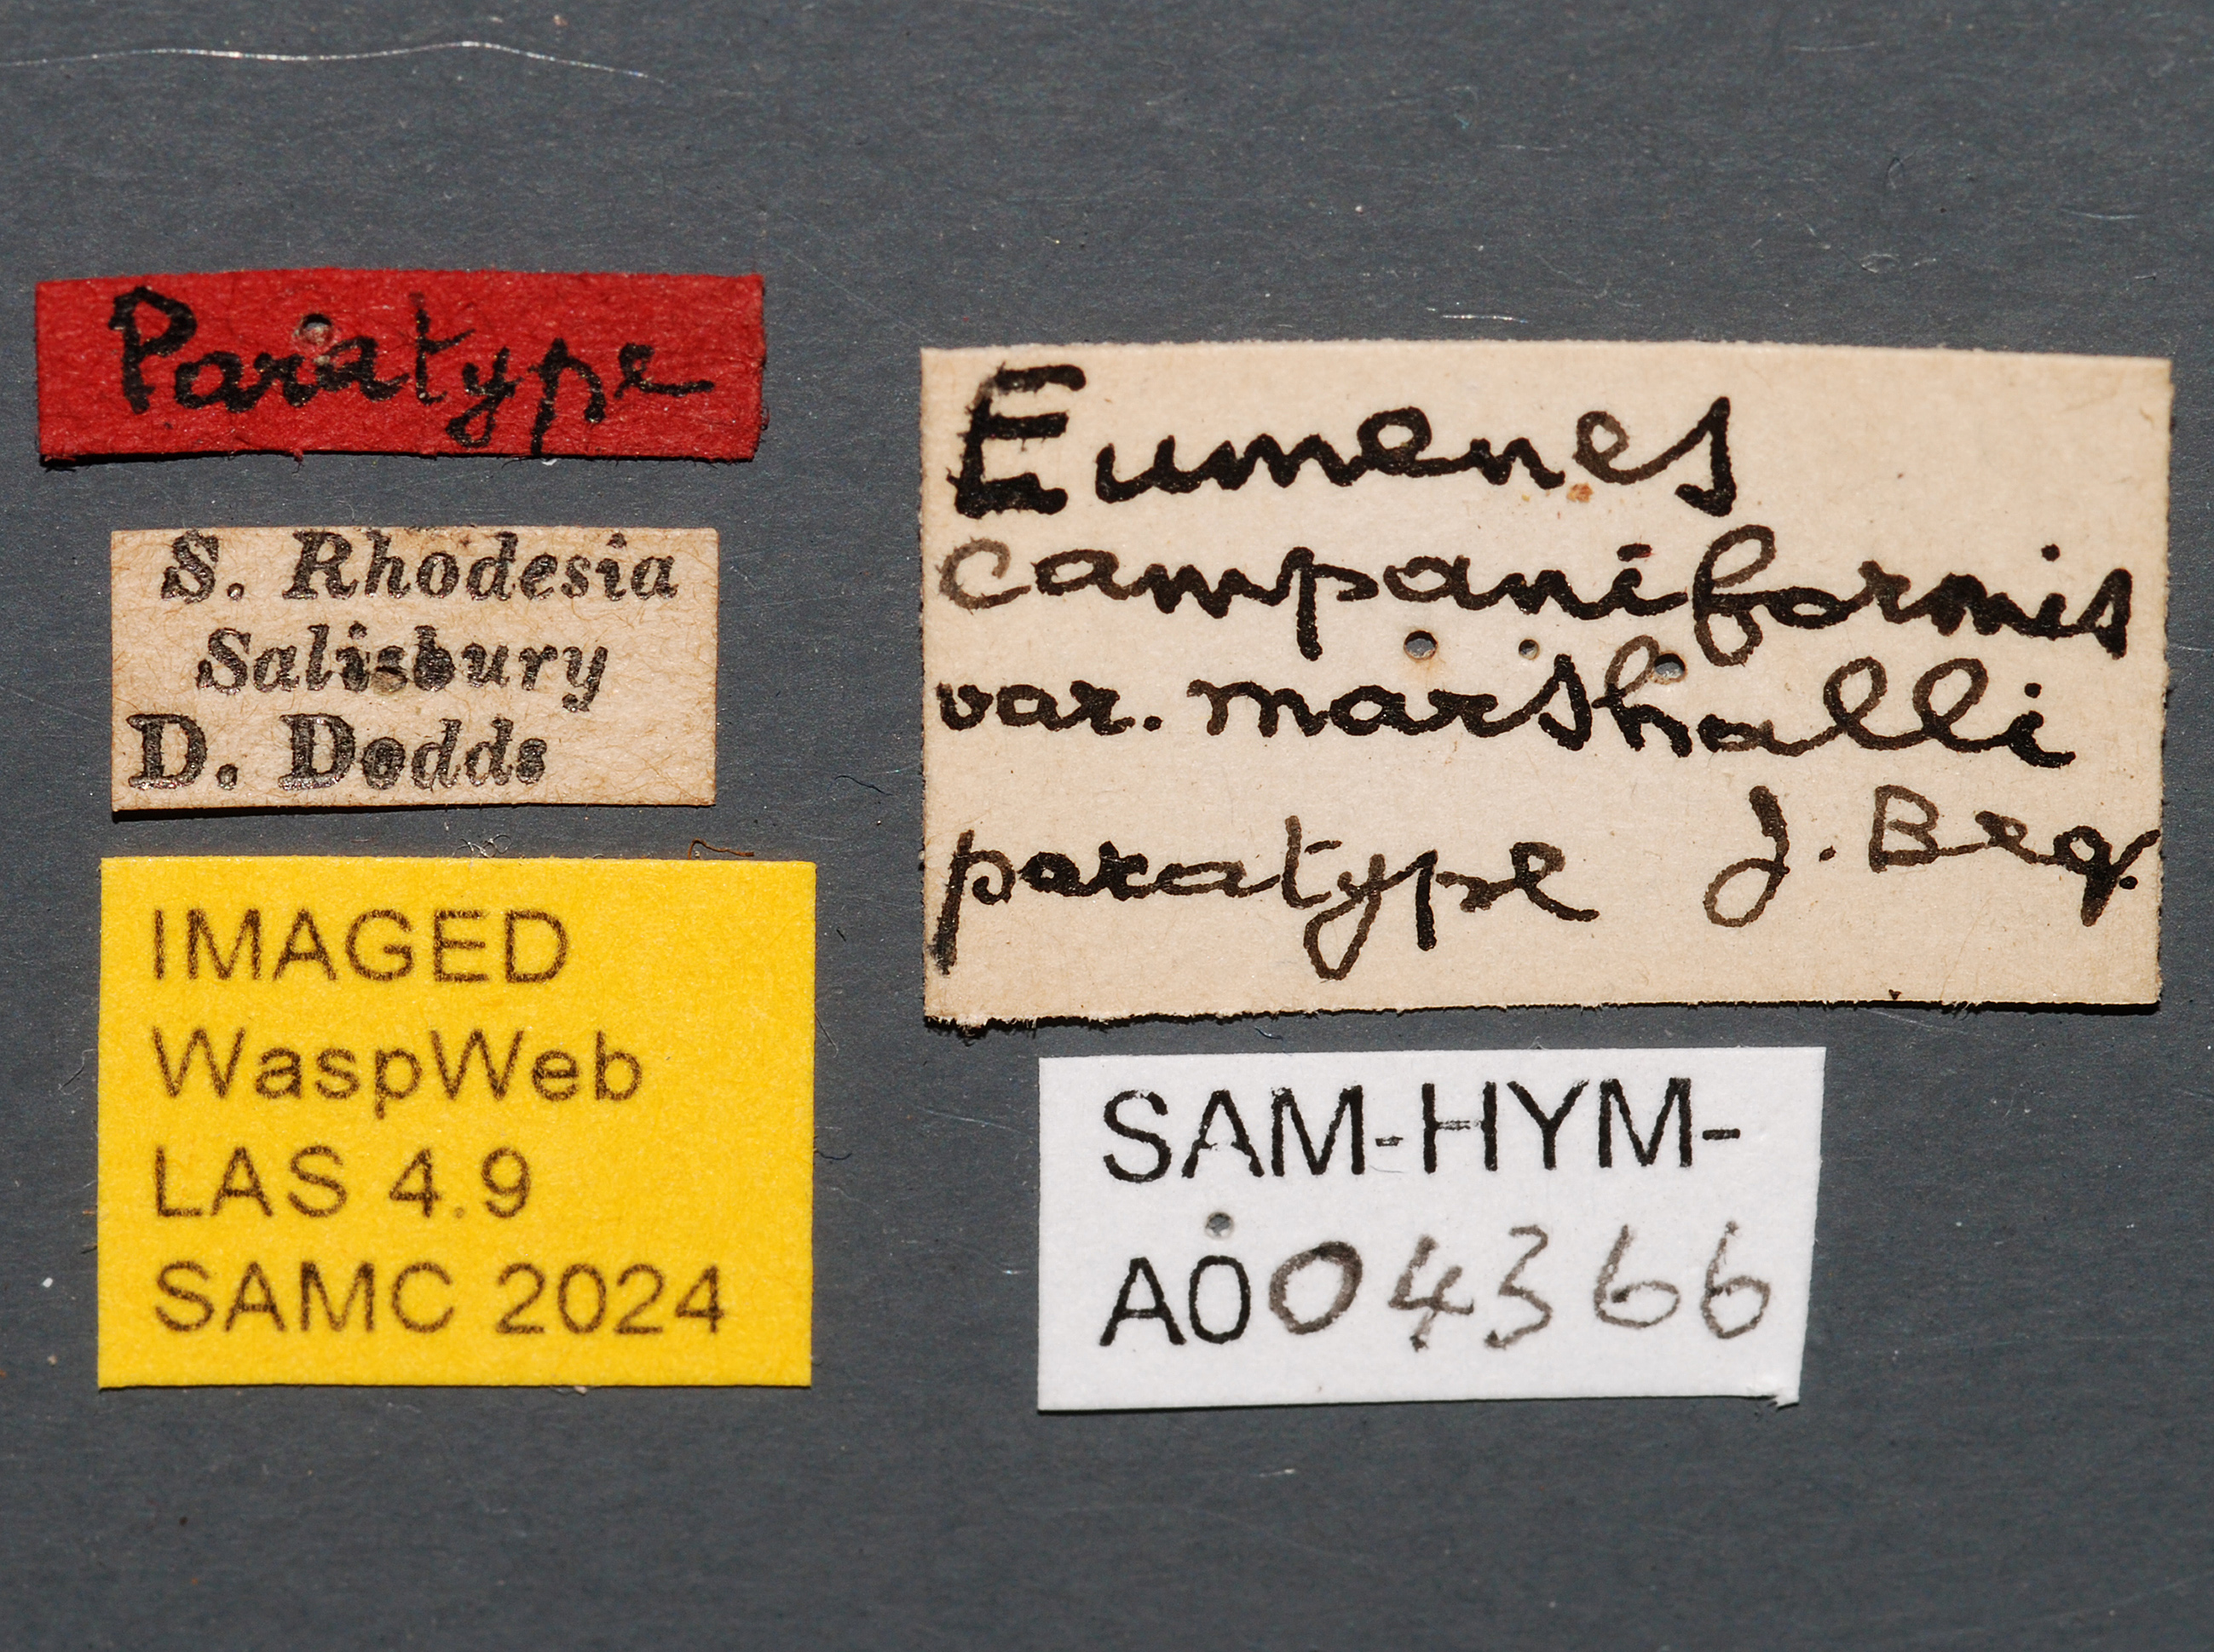 Paratype
S. Rhodesia
Salisbury
D. Dodds
IMAGED
WaspWeb
LAS 4.9
SAMC 2024
Eumenes
campaniformis
var. marshalli
paratype J. Beq.
SAM-HYM-
A004366